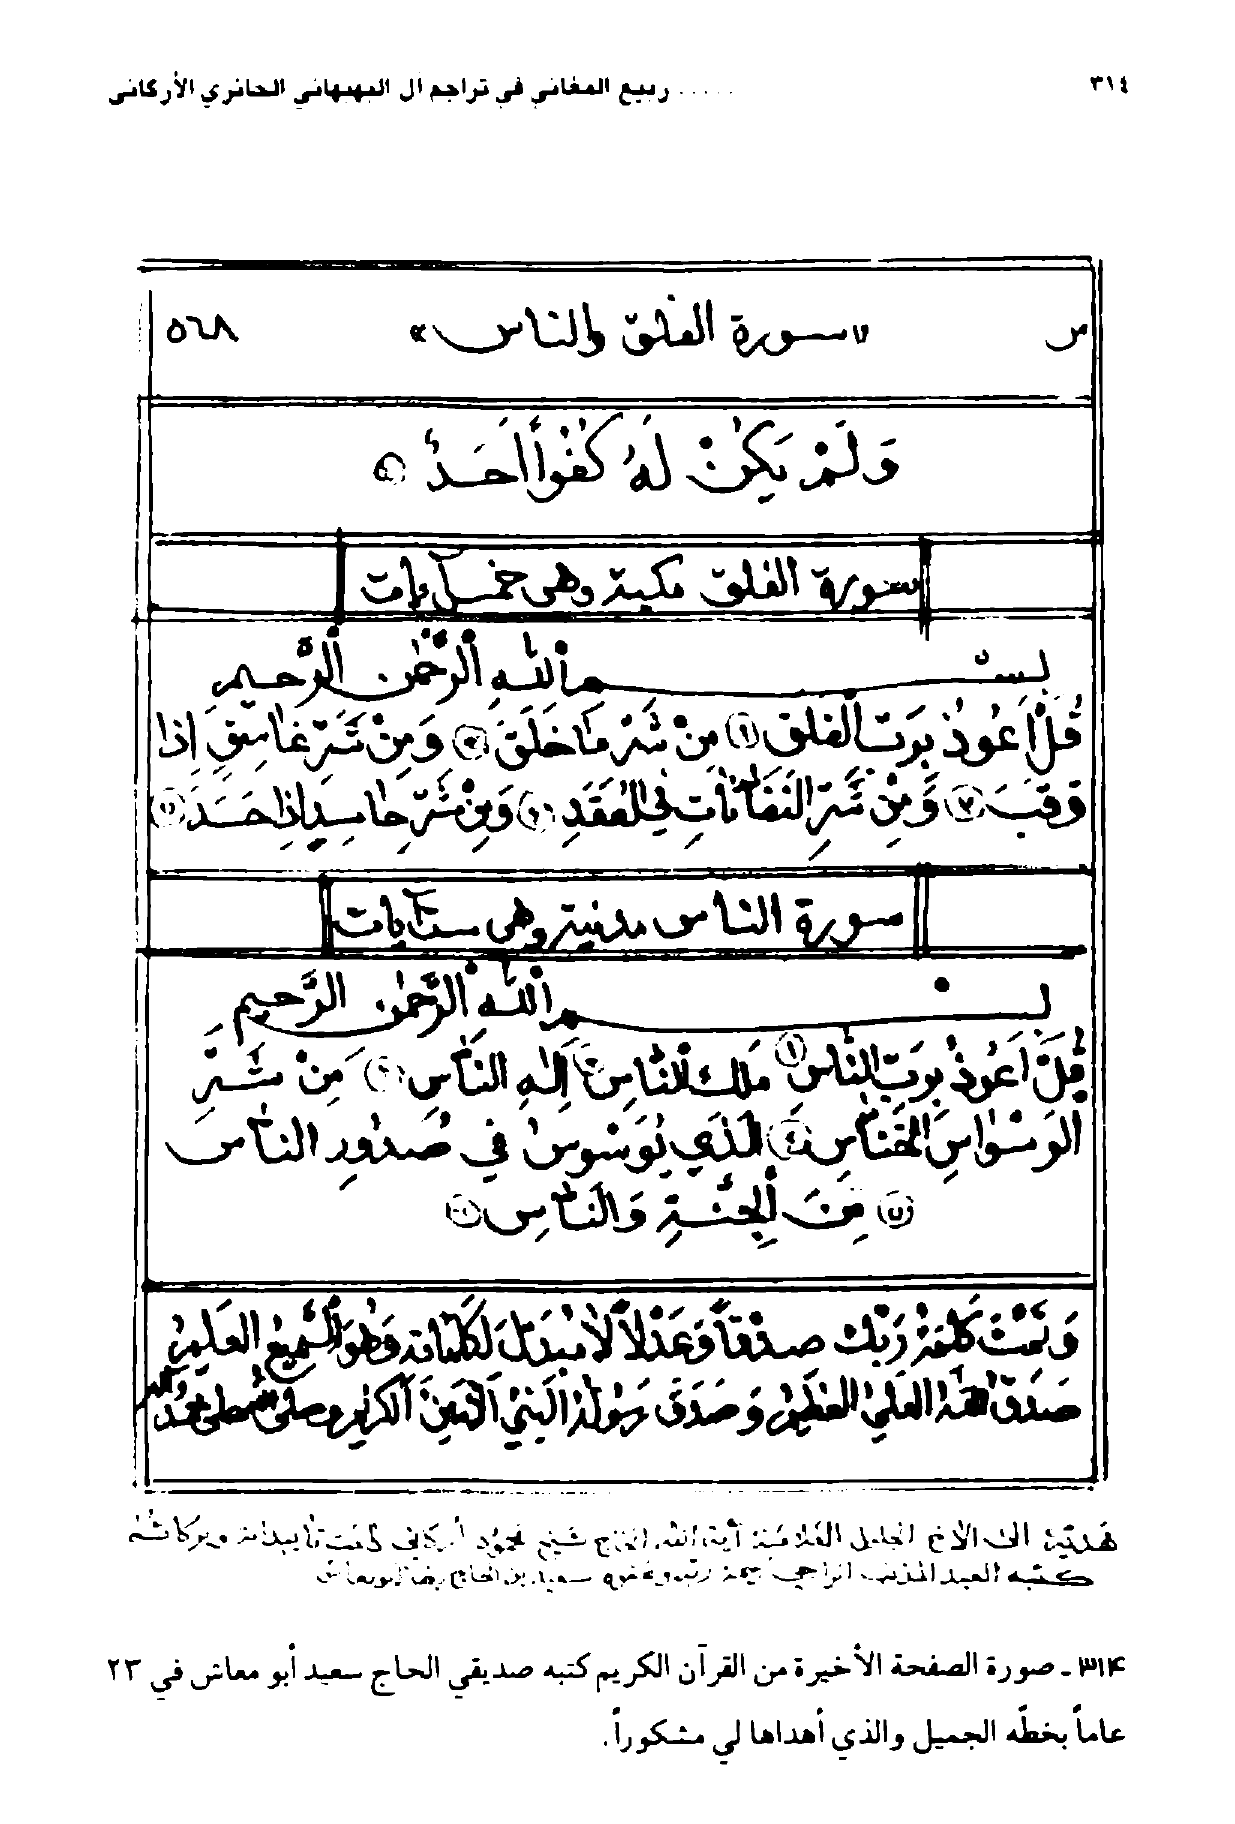 ٣١٤ ..... ربيع المغاني في تراجم آل البهبهاني الحائري الأركاني
س «سورة الفلق والناس» ٥٦٨
وَلَمْ يَكُنْ لَهُ كُفُواً اَحَدٌ
سورة الفلق مكية وهى خمس ءايات
بسم الله الرَّحْمٰن الرَّحيم
قُلْ اَعُوذُ بِرَبِّ الفلق ١ مِنْ شَرِّ مَا خَلَقَ وَمِنْ شَرِّ غَاسِقٍ اِذا
وَقَبَ وَمِنْ شَرِّ النَّفَّاثَاتِ فِي العُقَدِ وَمِنْ شَرِّ حَاسِدٍ اِذَا حَسَدَ
سورة الناس مدنية وهى ست آيات
بسم الله الرَّحْمٰن الرَّحيم
قُلْ اَعُوذُ بِرَبِّ النَّاسِ ١ مَلِكِ النَّاسِ اِلٰهِ النَّاسِ مِنْ شَرِّ
الوَسْوَاسِ الخَنَّاسِ ٤ الَّذي يُوَسْوِسُ في صُدُورِ النَّاسِ
مِنَ الْجِنَّةِ وَالنَّاسِ
وَتَمَّتْ كَلِمَةُ رَبِّكَ صِدْقاً وَعَدْلاً لاَ مُبَدِّلَ لِكَلِمَاتِهِ وَهُوَ السَّمِيعُ العَلِيمُ
صَدَقَ اللهُ العَلِيُّ العَظِيمُ وَصَدَقَ رَسُولُهُ النَّبِيُّ الاَمِينُ الكَرِيمُ وصلى على المصطفى محمد وآله
هديّة الى الاخ الجليل العلامة آية الله الحاج شيخ محمود أركاني دامت تأييداته وبركاته
كتبه العبد المذنب الراجي رحمة ربه وعفوه سعيد بن الحاج رضا ابو معاش
٣١٤ ـ صورة الصفحة الأخيرة من القرآن الكريم كتبه صديقي الحاج سعيد أبو معاش في ٢٣
عاماً بخطّه الجميل والذي أهداها لي مشكوراً.